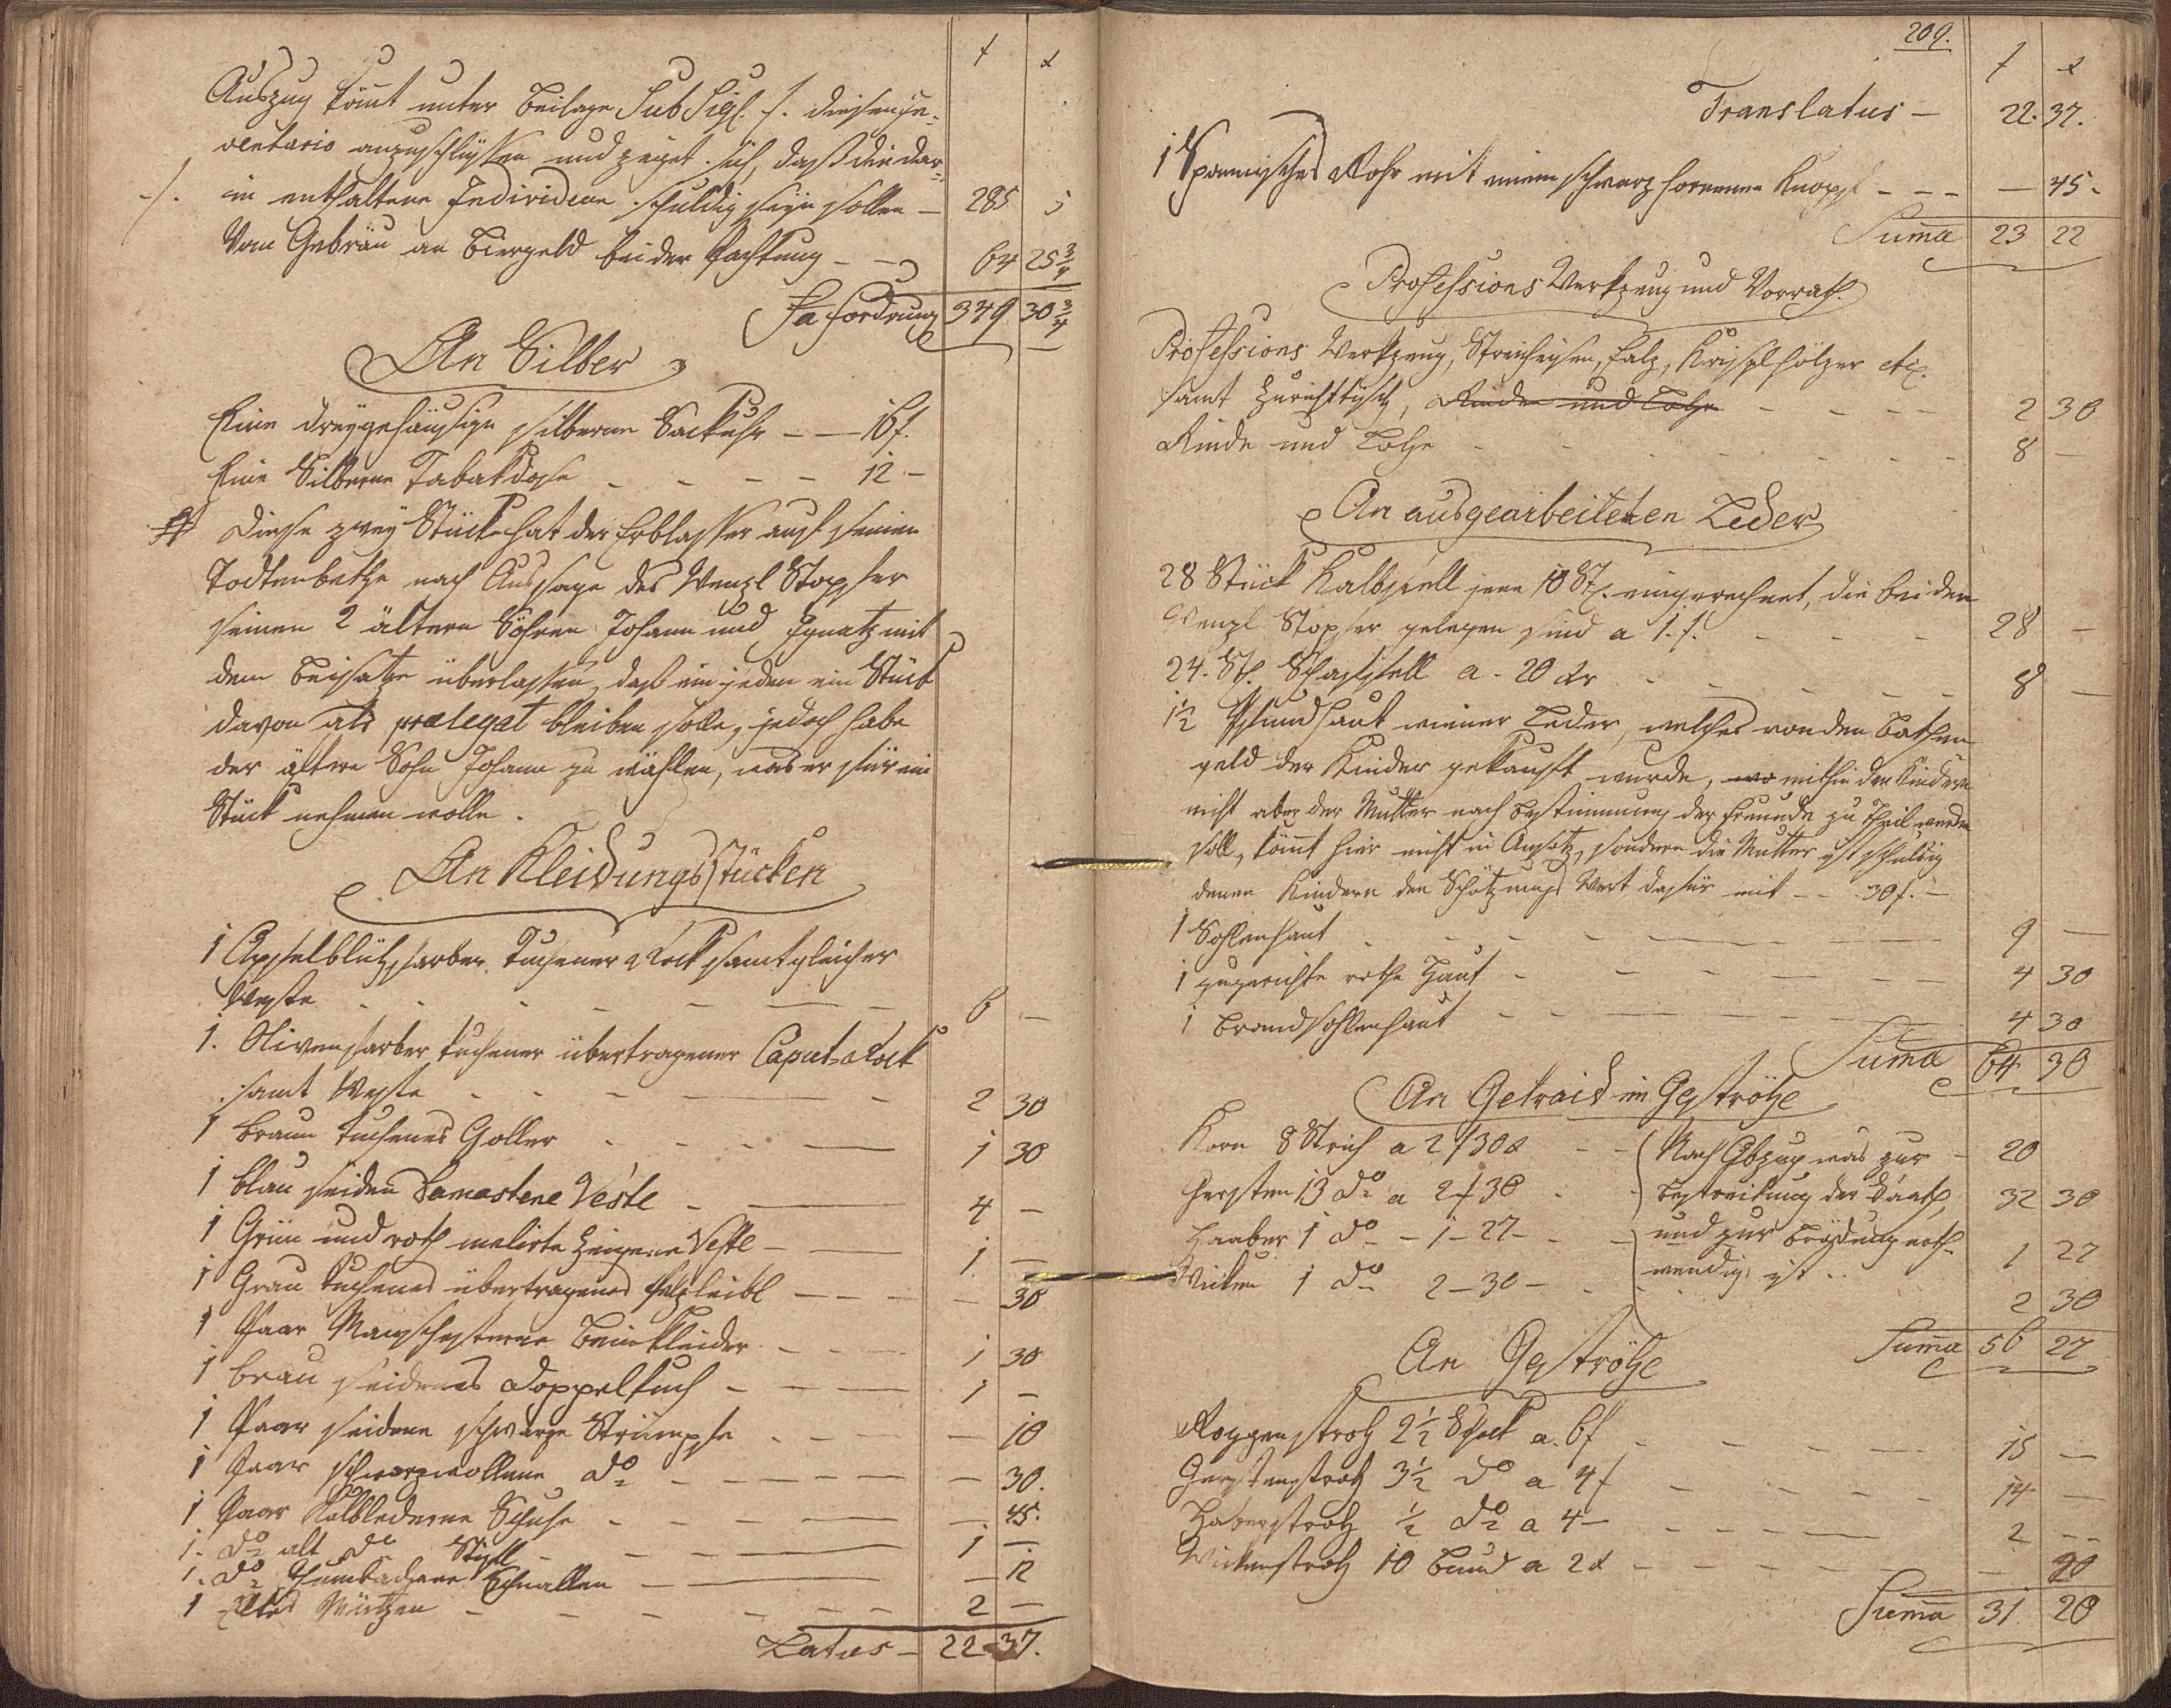 f x
Auszug kömt unter Beilage Sub Sigl. f. diesen in-
ventario anzuschlüssen und zeiget sich, daß die dar-
-/. in enthaltene Individuen schuldig seyn sollen — 285 5
Vom Gebräu an Biergeld bei der Pachtung — — 64 25 3/4
Sa Fordrung 349 30 3/4
An Silber
Eine dreygehäusige silberne Sackuhr — — 16 f.
Eine Silberne Tabakdose - - - - 12 —
Diese zwey Stücke hat der Erblasser auf seinem
Todtenbethe nach Aussage des Wenzl Stopfer
seinen 2 ältern Söhnen Johann und Ignatz mit
dem Beisatze überlassen, daß ein jeden ein Stück
davon als praelegat bleiben solle, jedoch habe
der ältere Sohn Johann zu wählen, was er für ein
Stück nehmen wolle.
An Kleidungsstücken
1 Apfelblühfarber Tuchener Rock samt gleicher
Weste - - - - — — 6 —
1. Olivenfarber tuchener übertragener Caput-Rock
samt Weste - - - — — - 2 30
1 braun tuchenes Goller - - - — 1 30
1 blau seiden Damastene Veste - — 4 —
1 Grün und roth melirte Zeugene Veste - — 1 —
1 Grau tuchenes übertragenes Pelzleibl — — - — 30
1 Paar Manschesterne Beinkleider - - - 1 30
1 braun seidenes Doppeltuch - — — 1 —
1 Paar seidene schwarze Strümpfe - - - — — 10
1 Paar schwarzwollene do - — — — — 30.
1 Paar Kalblederne Schuhe - - - — — — 45.
1. do alt do Stiefl - - — — 1 —
1. do Schnallen — — — 12
1 Mützen - - - - — — 2 —
Latus — 22 37.
209.
f x
Translatus — 22. 37.
1 Spannisches Rohr mit einem schwarz hornenen Knopf - - - — 45.
Suma 23 22
Professions Werkzeug und Vorrath.
Professions Werkzeug, Streicheisen, Falz, Krispelhölzer etc.
samt Zurichttisch, Rinden und Lohe - - - — 2 30
Rinde und Lohe - - - - - - - 8 —
An ausgearbeiteten Leder
28 Stück Kalbfell jene 10 St. eingerechnet, die bei den
Wenzl Stopfer gelegen sind a 1. f. - - - 28 —
24. St. Schaffell a - 20 xr - - - - — 8 —
1½ Pfundhaut wiener Leder, welches von den Bathen-
geld der Kinder gekauft wurde, wo mithin den Kindern
nicht aber der Mutter nach Bestimmung der Freunde zu Theil werden
soll, kömt hier nicht in Ansatz, sondern die Mutter ist schuldig
denen Kindern den Schätzungs Wert dafür mit — - 30 f. —
1 Sohlenhaut - - - - — — — 9 —
1 zugerichte rothe Haut - — - — — — 4 30
1 Brandsohlenhaut - - - — — — 4 30
Suma 64 30
An Getraid im Geströhe
Korn 8 Strich a 2 f 30 x - - Nach Abzug was zur - 20
Gersten 13 do a 2 f 30 - - Bestreitung der Saath, 32 30
Haaber 1 do - 1 - 27 - - - und zur Brödung noth- 1 27
Wicken 1 do 2 - 30 - - wendig ist .. 2 30
Summa 56 27
An Geströhe
Roggenstroh 2½ Schok a 6 f - - - — 15 —
Gerstenstroh 3½ do a 4 f - - - - - 14 —
Haberstroh ½ do a 4 — - - - — 2 —
Wickenstroh 10 Bund a 2 x — - - - - — 20
Summa 31 20